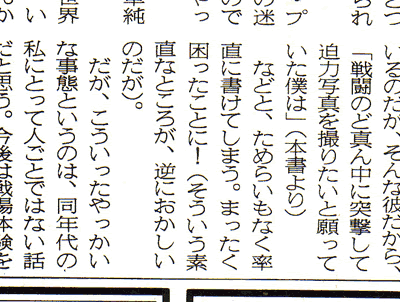 られ
とつ
プ
の迷
ので
やっ
単純
世界
い
いるのだが、そんな彼だから、
「戦闘のど真ん中に突撃して
迫力写真を撮りたいと願って
いた僕は」(本書より)
などと、ためらいもなく率
直に書けてしまう。まったく
困ったことに!(そういう素
直なところが、逆におかしい
のだが)。
だが、こういったやっかい
な事態というのは、同年代の
私にとって人ごとではない話
だと思う。今後は戦場体験を